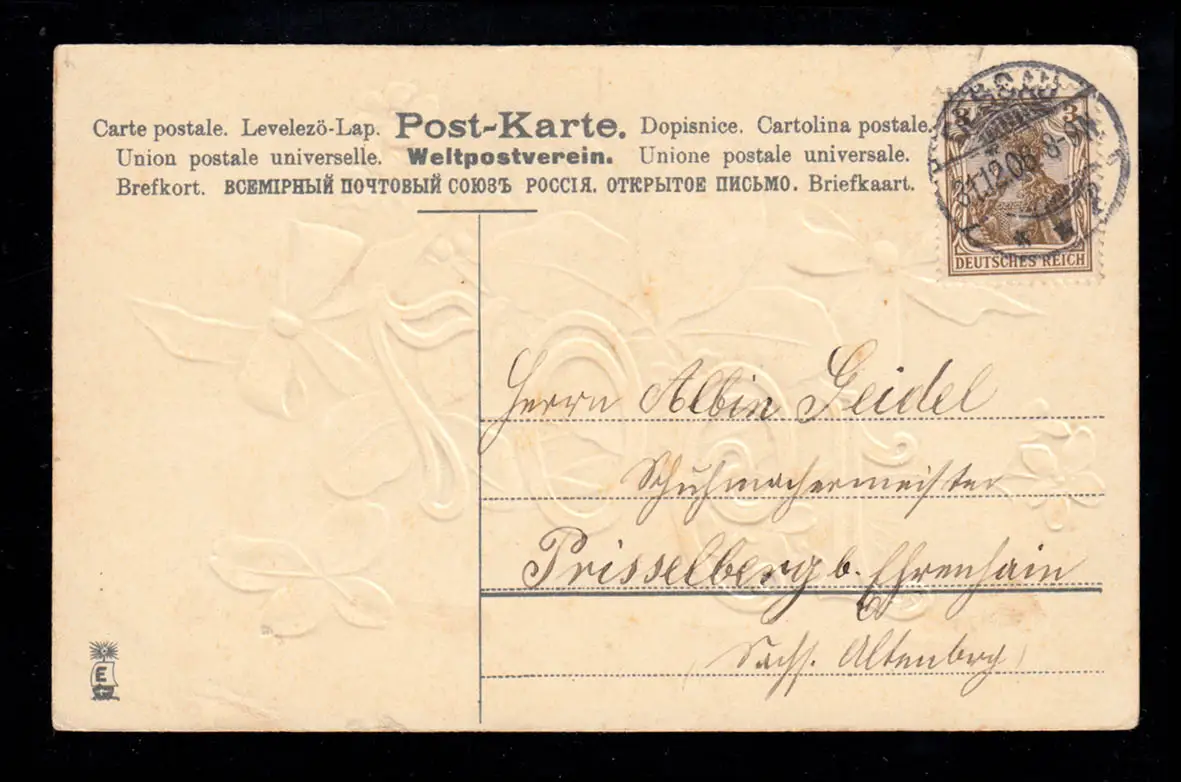 Carte postale. Levelezö-Lap. Post-Karte. Dopisnice. Cartolina postale.
Union postale universelle. Weltpostverein. Unione postale universale.
Brefkort. ВСЕМІРНЫЙ ПОЧТОВЫЙ СОЮЗЪ РОССІЯ. ОТКРЫТОЕ ПИСЬМО. Briefkaart.
3 3
31.12.08. 8-9N.
DEUTSCHES REICH
Herrn Albin Seidel
Schuhmachermeister
Prisselberg b. Ehrenhain
(Sachs. Altenbrg)
E